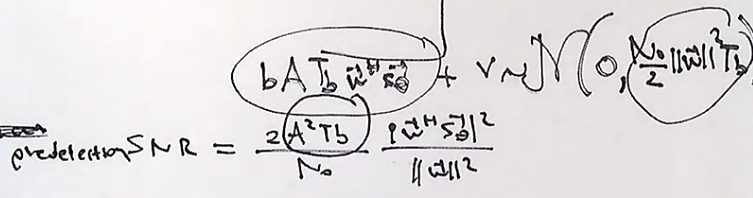 b A T_b \vec{w}^H \vec{s_0} + v ~ N(0, \frac{N_0}{2} ||\vec{w}||^2 T_b)
predetection SNR = \frac{2 A^2 T_b}{N_0} \frac{|\vec{w}^H \vec{s_0}|^2}{||\vec{w}||^2}